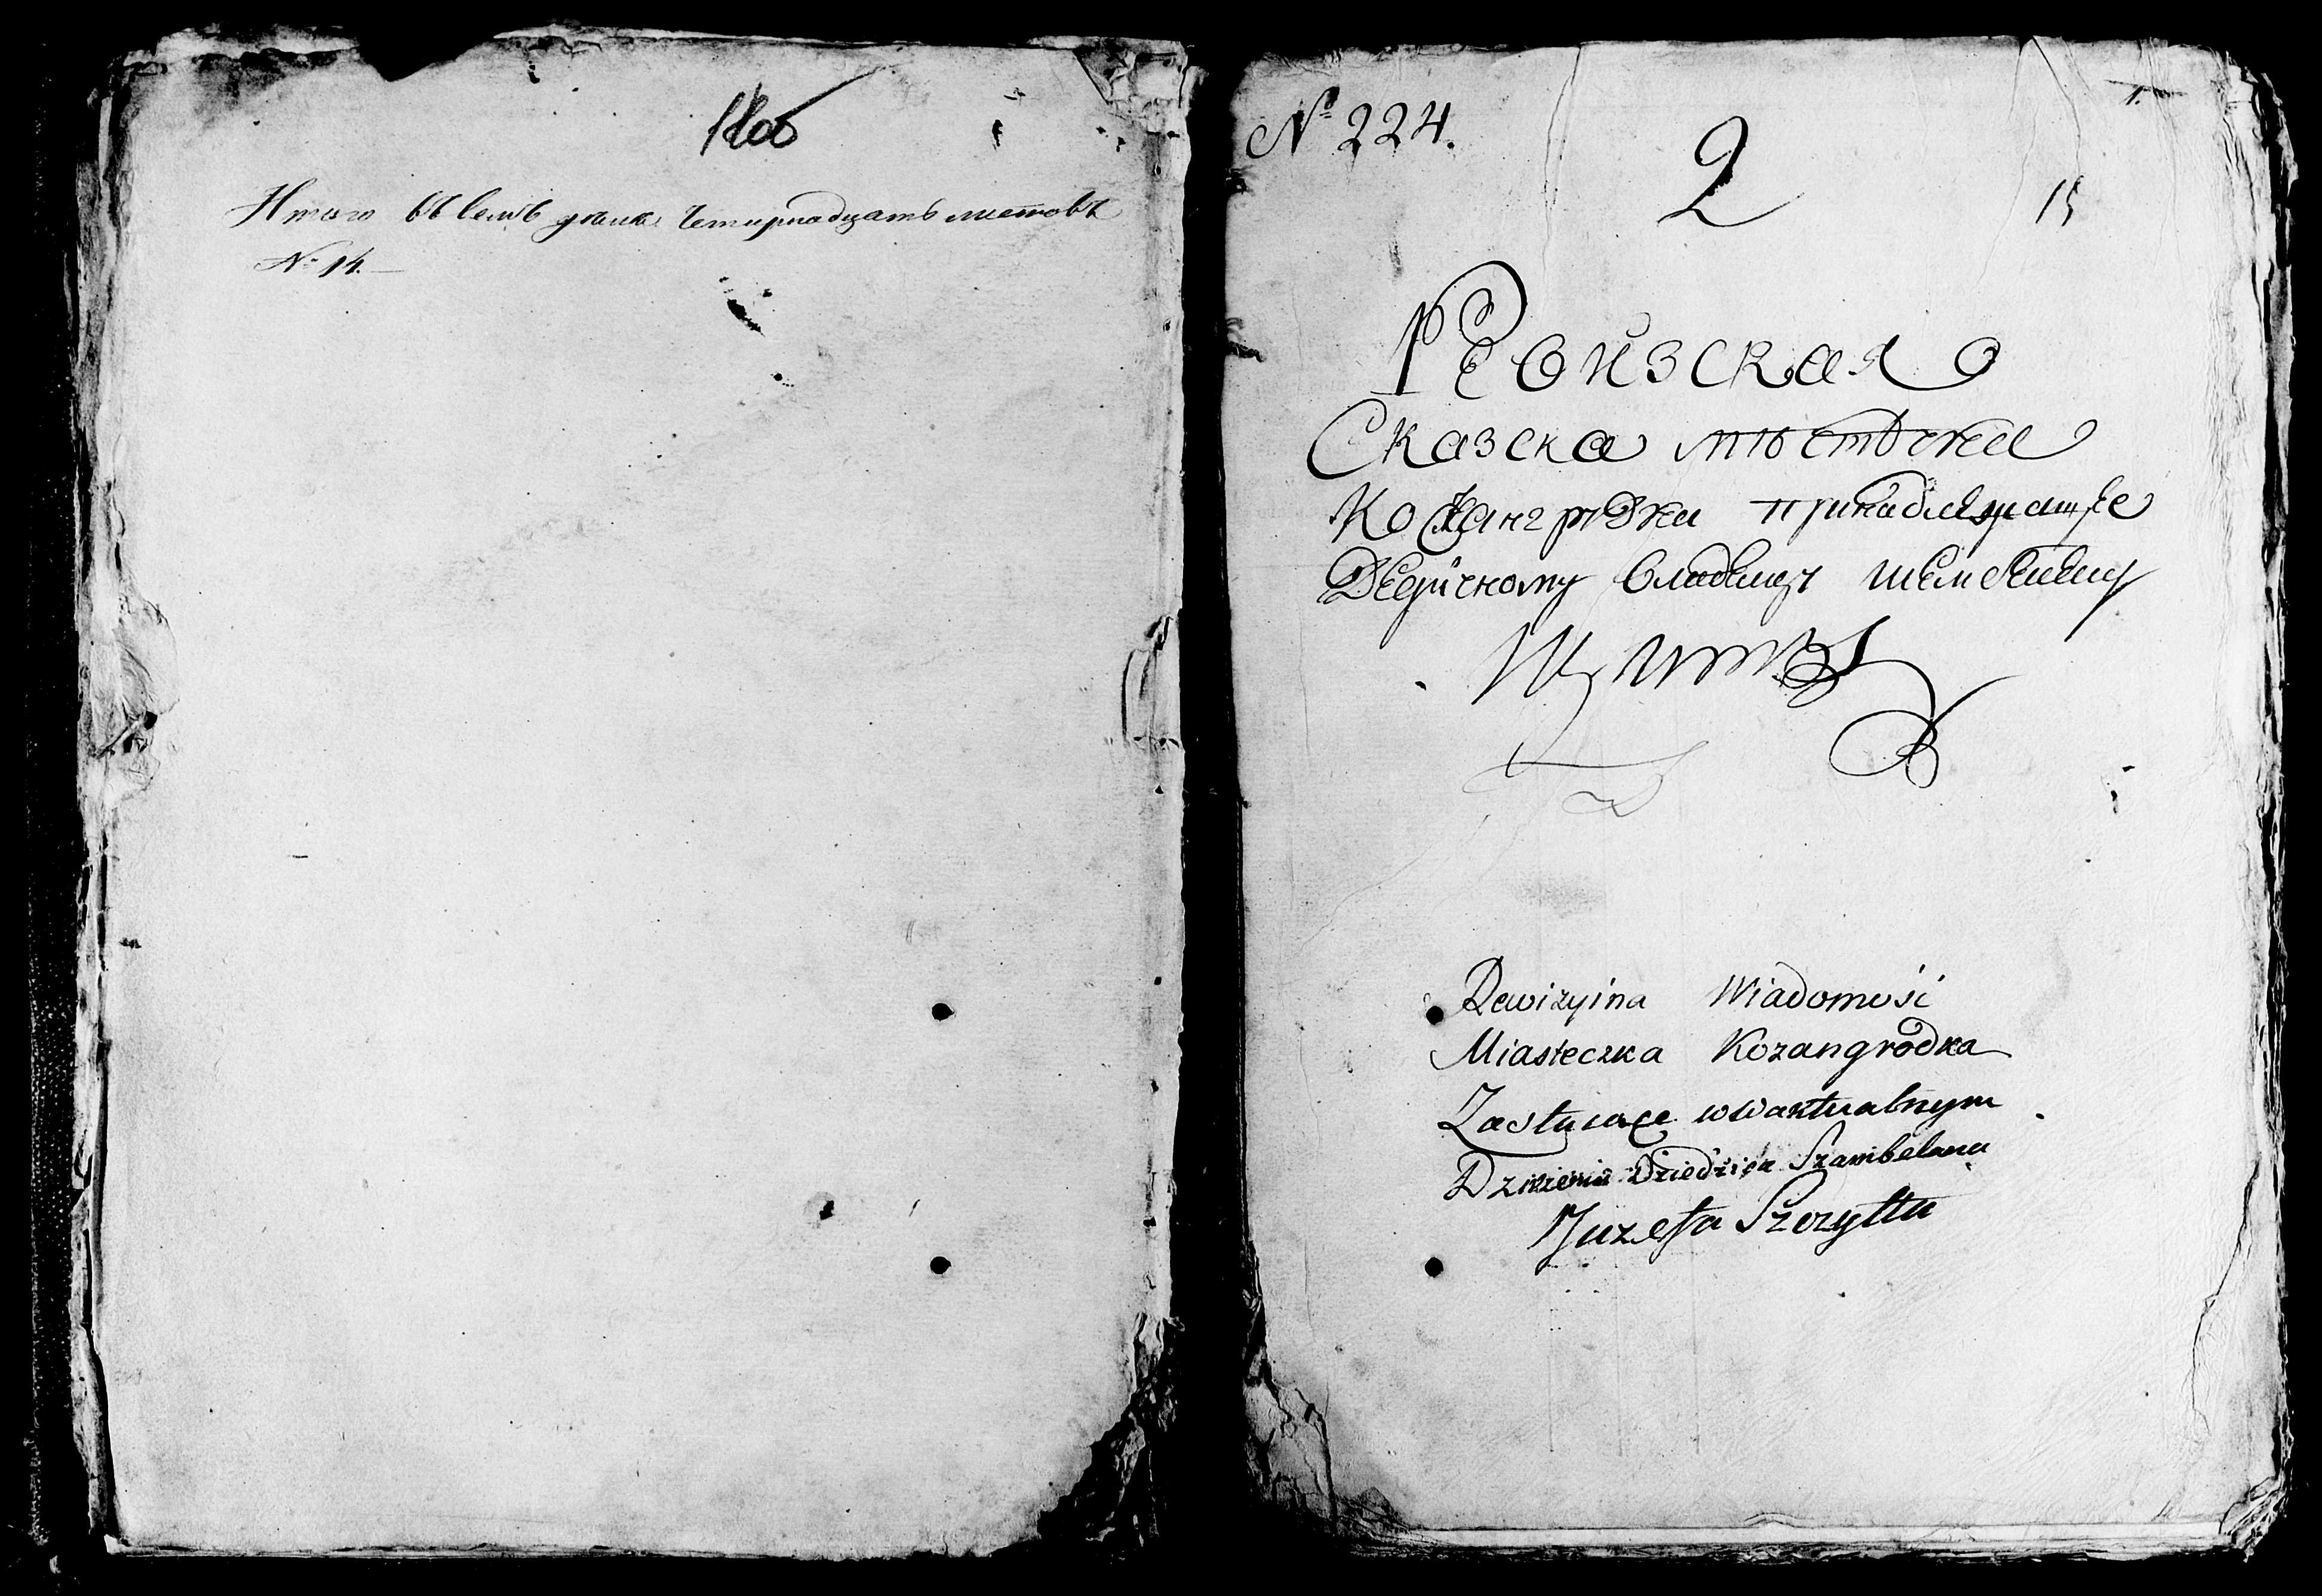 Итого въ семъ делѣ четирнадцать листовъ
№ 14.
№ 224.
1.
2
15
Ревизская
Сказска мѣстечка
Кожангродка принадлежащее
Дедичному владелцу шамбелину
Щиту
Rewizyina Wiadomość
Miasteczka Kozangrodka
Zostaiące w aktualnym
Dzierżeniu Dziedzica Szambelana
Juzefa Szczytta